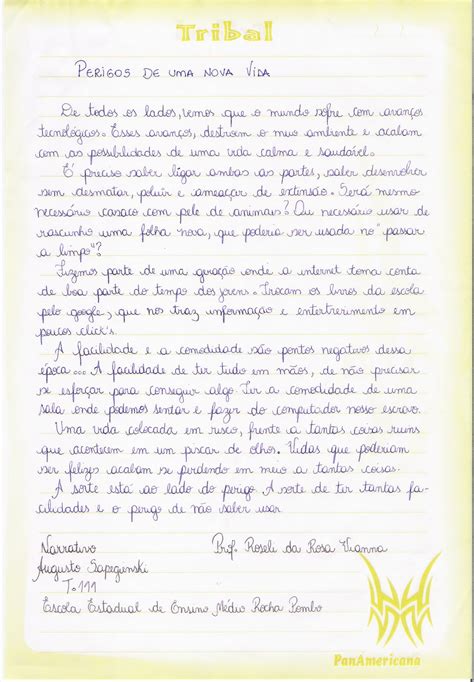 Tribal
PERIGOS DE UMA NOVA VIDA
De todos os lados, vemos que o mundo sofre com avanços
tecnológicos. Esses avanços, destroem o meio ambiente e acabam
com as possibilidades de uma vida calma e saudável.
É preciso saber ligar ambas as partes, saber desenvolver
sem desmatar, poluir e ameaçar de extensão. Será mesmo
necessário casaco com pele de animais? Ou necessário usar de
rascunho uma folha nova, que poderia ser usada no "passar
a limpo"?
Fizemos parte de uma geração onde a internet toma conta
de boa parte do tempo dos jovens. Trocam os livros da escola
pelo google, que nos traz informação e entertenimento em
poucos click's.
A facilidade e a comodidade são pontos negativos dessa
época... A facilidade de ter tudo em mãos, de não precisar
se esforçar para conseguir algo. Ter a comodidade de uma
sala onde podemos sentar e fazer do computador nosso escravo.
Uma vida colocada em risco, frente a tantas coisas ruins
que acontecem em um piscar de olhos. Vidas que poderiam
ser felizes acabam se perdendo em meio a tantas coisas.
A sorte está ao lado do perigo. A sorte de ter tantas fa-
cilidades e o perigo de não saber usar
Narrativo Prof. Roseli da Rosa Vianna
Augusto
T. 111
Escola Estadual de Ensino Médio Rocha Pombo
PanAmericana